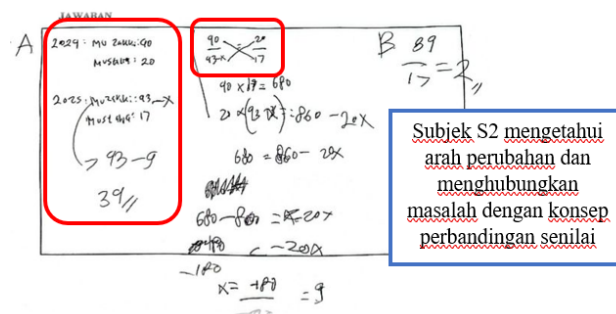 JAWABAN
A
2024: Muzakki: 90
Mustahiq: 20
2025: Muzakki: 93-x
Mustahiq: 17
→ 93-9
39//
90/93-x = 20/17
90 x 17 = 680
20 x (93 - x) = 860 - 20x
680 = 860 - 20x
680 - 860 = -20x
-180 = -20x
x = -180 = 9
B 89/17 = 2//
Subjek S2 mengetahui
arah perubahan dan
menghubungkan
masalah dengan konsep
perbandingan senilai